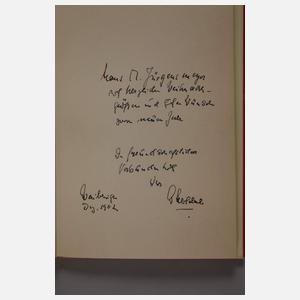 Hans M. Jürgensmeyer
mit herzlichen Weihnachts-
grüßen und guten Wünschen
zum neuen Jahr
In freundschaftlicher
Verbundenheit
Ihr
Dez.